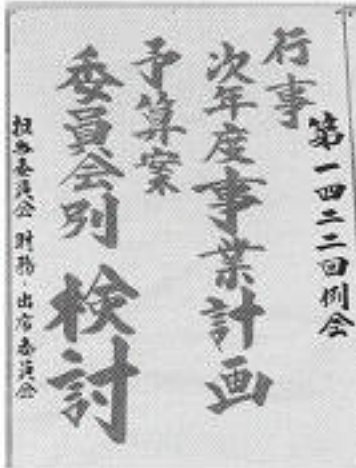 第一四二二回例会
行事
次年度事業計画
予算案
委員会別 検討
担当委員会 財務・出席委員会